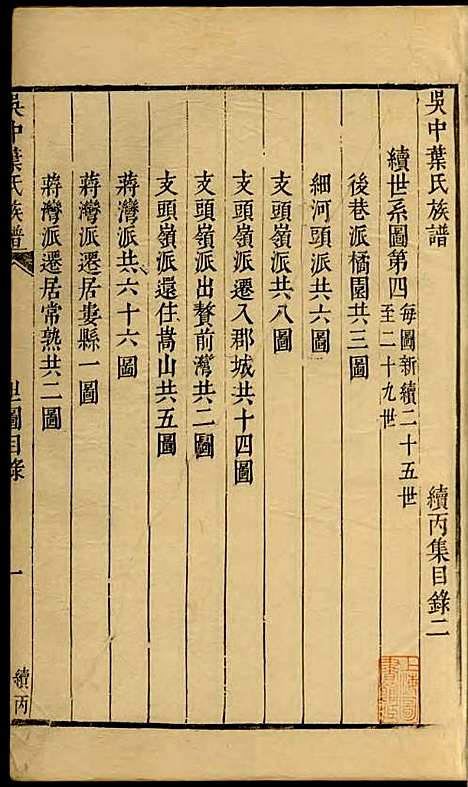 吳中葉氏族譜 續丙集目錄二
續世系圖第四 每圖新續二十五世
至二十九世
後巷派橘園共三圖
細河頭派共六圖
支頭嶺派共八圖
支頭嶺派遷入郡城共十四圖
支頭嶺派出贅前灣共二圖
支頭嶺派還住嵩山共五圖
蔣灣派共六十六圖
蔣灣派遷居婁縣一圖
蔣灣派遷居常熟共二圖
吳中葉氏族譜 世圖目錄 一 續丙
上海圖書館藏